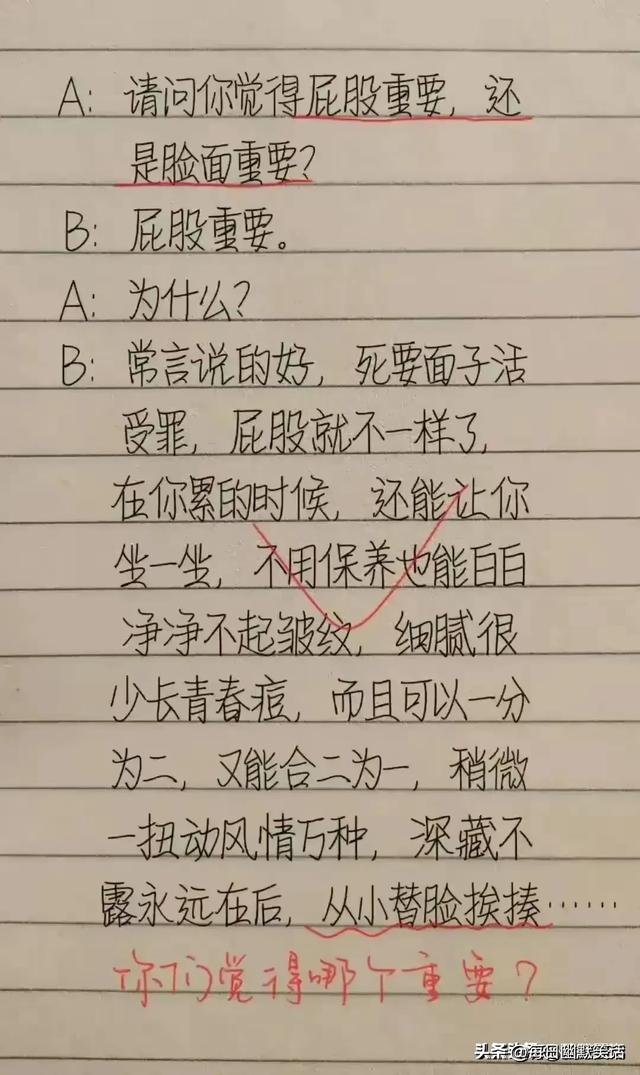 A: 请问你觉得屁股重要, 还
是脸面重要?
B: 屁股重要。
A: 为什么?
B: 常言说的好, 死要面子活
受罪, 屁股就不一样了,
在你累的时候, 还能让你
坐一坐, 不用保养也能白白
净净不起皱纹, 细腻很
少长青春痘, 而且可以一分
为二, 又能合二为一, 稍微
一扭动风情万种, 深藏不
露永远在后, 从小替脸挨揍……
你们觉得哪个重要?
头条 @每日幽默笑话